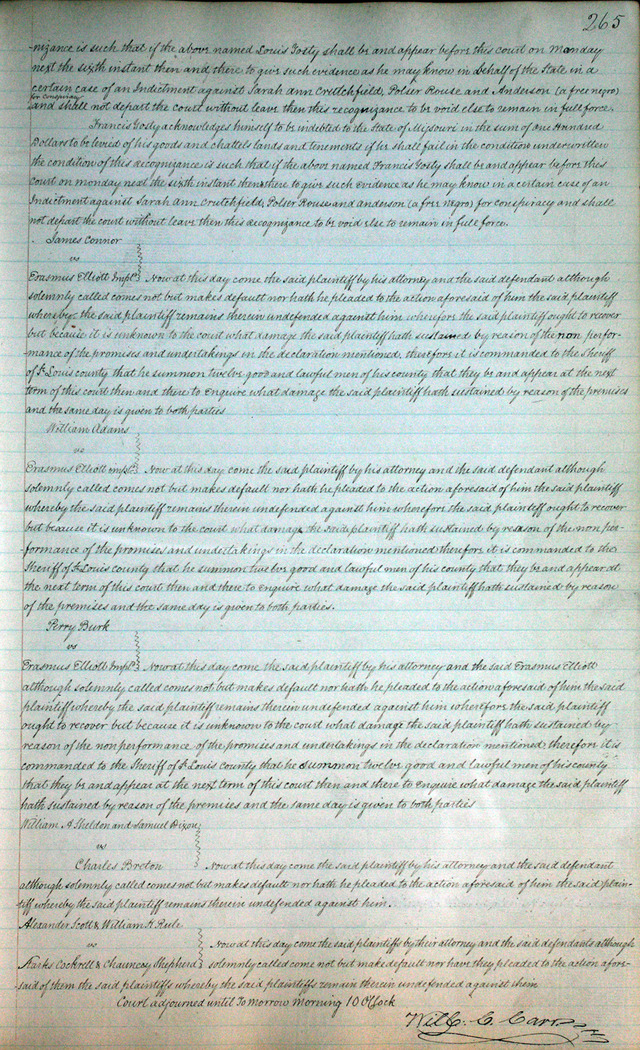 265
nizance is such that if the above named Louis Gosty shall be and appear before this court on Monday
next the sixth instant then and there to give such evidence as he may know in behalf of the State in a
certain case of an Indictment against Sarah Ann Crutchfield, Polser Rouse and Anderson (a free negro)
for Conspiracy
and shall not depart the court without leave then this recognizance to be void else to remain in full force.
Francis Gosty acknowledges himself to be indebted to the State of Missouri in the sum of one Hundred
Dollars to be levied of his goods and chattels lands and tenements if he shall fail in the condition underwritten
the condition of this recognizance is such that if the above named Francis Gosty shall be and appear before this
court on monday next the sixth instant then & there to give such evidence as he may know in a certain case of an
Indictment against Sarah Ann Crutchfield, Polser Rouse and anderson (a free negro) for conspiracy and shall
not depart the court without leave then this recognizance to be void else to remain in full force.
James Connor
vs
Erasmus Elliott Impld. Now at this day come the said plaintiff by his attorney and the said defendant although
solemnly called comes not but makes default nor hath he pleaded to the action aforesaid of him the said plaintiff
whereby the said plaintiff remains therein undefended against him wherefore the said plaintiff ought to recover
but because it is unknown to the court what damage the said plaintiff hath sustained by reason of the non perfor-
mance of the promises and undertakings in the declaration mentioned, therefore it is commanded to the Sheriff
of St Louis county that he summon twelve good and lawful men of his county that they be and appear at the next
term of this court then and there to enquire what damage the said plaintiff hath sustained by reason of the premises
and the same day is given to both parties
William Adams
vs
Erasmus Elliott impld. Now at this day come the said plaintiff by his attorney and the said defendant although
solemnly called comes not but makes default nor hath he pleaded to the action aforesaid of him the said plaintiff
whereby the said plaintiff remains therein undefended against him wherefore the said plaintiff ought to recover
but because it is unknown to the court what damage the said plaintiff hath sustained by reason of the non per-
formance of the promises and undertakings in the declaration mentioned therefore it is commanded to the
Sheriff of St Louis county that he summon twelve good and lawful men of his county that they be and appear at
the next term of this court then and there to enquire what damage the said plaintiff hath sustained by reason
of the premises and the same day is given to both parties.
Perry Burk
vs
Erasmus Elliott Impld. Now at this day come the said plaintiff by his attorney and the said Erasmus Elliott
although solemnly called comes not but makes default nor hath he pleaded to the action aforesaid of him the said
plaintiff whereby the said plaintiff remains therein undefended against him wherefore the said plaintiff
ought to recover but because it is unknown to the court what damage the said plaintiff hath sustained by
reason of the non performance of the promises and undertakings in the declaration mentioned therefore it is
commanded to the Sheriff of St Louis county that he summon twelve good and lawful men of his county
that they be and appear at the next term of this court then and there to enquire what damage the said plaintiff
hath sustained by reason of the premises and the same day is given to both parties
William A Sheldon and Samuel Dixon
vs
Charles Breton Now at this day come the said plaintiff by his attorney and the said defendant
although solemnly called comes not but makes default nor hath he pleaded to the action aforesaid of him the said plain-
tiff whereby the said plaintiff remains therein undefended against him.
Alexander Scott & William K Rule
vs Now at this day come the said plaintiffs by their attorney and the said defendants although
Starks Cockrell & Chauncey Shepherd solemnly called come not but make default nor have they pleaded to the action afore-
said of them the said plaintiffs whereby the said plaintiffs remain therein undefended against them
Court adjourned until Tomorrow Morning 10 OClock
Will. C. Carr